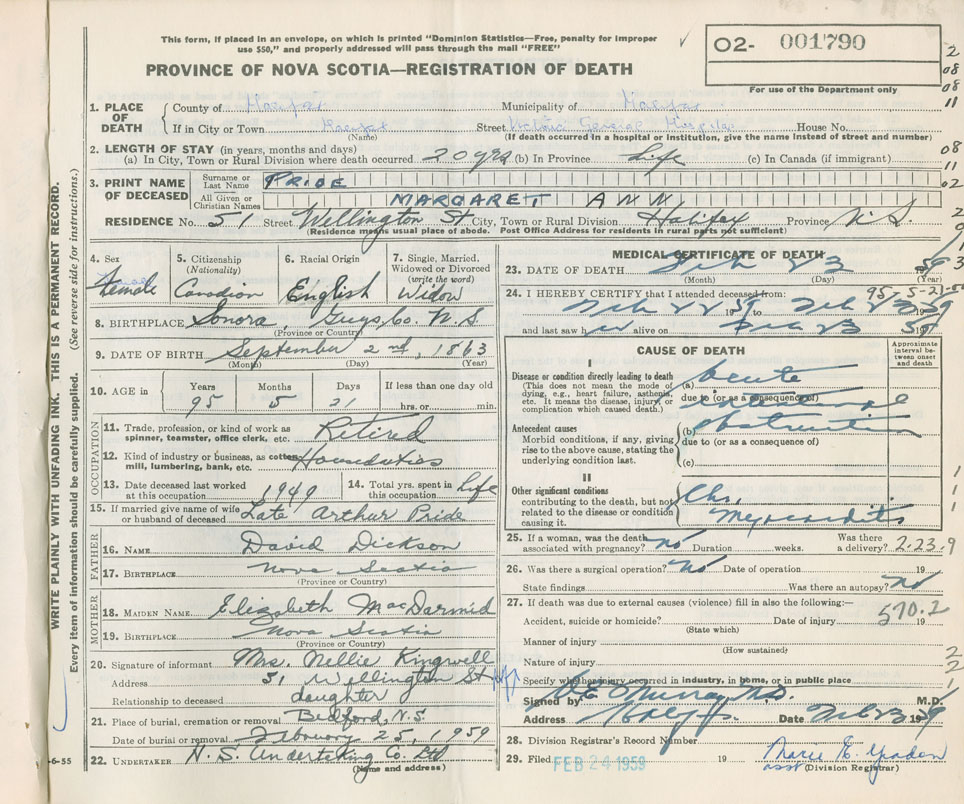 This form, if placed in an envelope, on which is printed "Dominion Statistics—Free, penalty for improper
use $50," and properly addressed will pass through the mail "FREE"
PROVINCE OF NOVA SCOTIA—REGISTRATION OF DEATH
O2- 001790
For use of the Department only
1. PLACE OF DEATH County of Halifax Municipality of Halifax
If in City or Town Halifax Street Victoria General Hospital House No.
(Name) (If death occurred in a hospital or institution, give the name instead of street and number)
2. LENGTH OF STAY (in years, months and days)
(a) In City, Town or Rural Division where death occurred 20 yrs (b) In Province Life (c) In Canada (if immigrant)
3. PRINT NAME OF DECEASED Surname or Last Name PRIDE
All Given or Christian Names MARGARET ANN
RESIDENCE No. 51 Street Wellington St City, Town or Rural Division Halifax Province N.S.
(Residence means usual place of abode. Post Office Address for residents in rural parts not sufficient)
4. Sex Female
5. Citizenship (Nationality) Canadian
6. Racial Origin English
7. Single, Married, Widowed or Divorced (write the word) Widow
8. BIRTHPLACE Sonora, Guys. Co. N.S
(Province or Country)
9. DATE OF BIRTH September 2nd, 1863
(Month) (Day) (Year)
10. AGE in Years 95 Months 5 Days 21 If less than one day old hrs. or min.
OCCUPATION
11. Trade, profession, or kind of work as spinner, teamster, office clerk, etc. Retired
12. Kind of industry or business, as cotton mill, lumbering, bank, etc. Houseduties
13. Date deceased last worked at this occupation 1949
14. Total yrs. spent in this occupation Life
15. If married give name of wife or husband of deceased Late Arthur Pride
FATHER
16. NAME David Dickson
17. BIRTHPLACE Nova Scotia
(Province or Country)
MOTHER
18. MAIDEN NAME Elizabeth MacDarmid
19. BIRTHPLACE Nova Scotia
(Province or Country)
20. Signature of informant Mrs. Nellie Kingwell
Address 51 Wellington St
Relationship to deceased daughter
21. Place of burial, cremation or removal Bedford, N.S.
Date of burial or removal February 25, 1959
22. UNDERTAKER N.S. Undertaking Co. Ltd
(Name and address)
MEDICAL CERTIFICATE OF DEATH
23. DATE OF DEATH Feb 23 59
(Month) (Day) (Year)
95-5-21-
24. I HEREBY CERTIFY that I attended deceased from:
Feb 22 1959 to Feb 23 1959
and last saw her alive on Feb 23 1959
CAUSE OF DEATH
Approximate interval between onset and death
I
Disease or condition directly leading to death
(This does not mean the mode of dying, e.g., heart failure, asthenia, etc. It means the disease, injury, or complication which caused death.)
(a) Acute
due to (or as a consequence of) intestinal
Antecedent causes
Morbid conditions, if any, giving rise to the above cause, stating the underlying condition last.
(b) obstruction
due to (or as a consequence of)
(c)
II
Other significant conditions
contributing to the death, but not related to the disease or condition causing it.
Chr. Myocarditis
25. If a woman, was the death associated with pregnancy? No Duration weeks. Was there a delivery?
2-23-9
26. Was there a surgical operation? No Date of operation 19
State findings Was there an autopsy? No
27. If death was due to external causes (violence) fill in also the following:—
570.2
Accident, suicide or homicide? Date of injury 19
(State which)
Manner of injury
(How sustained)
Nature of injury
Specify whether injury occurred in industry, in home, or in public place
Signed by Murray M.D.
Address Halifax Date Feb 23 1959
28. Division Registrar's Record Number
29. Filed FEB 24 1959 19
asst (Division Registrar)
WRITE PLAINLY WITH UNFADING INK. THIS IS A PERMANENT RECORD.
Every item of information should be carefully supplied. (See reverse side for instructions.)
-6-55
2
08
08
11
08
11
02